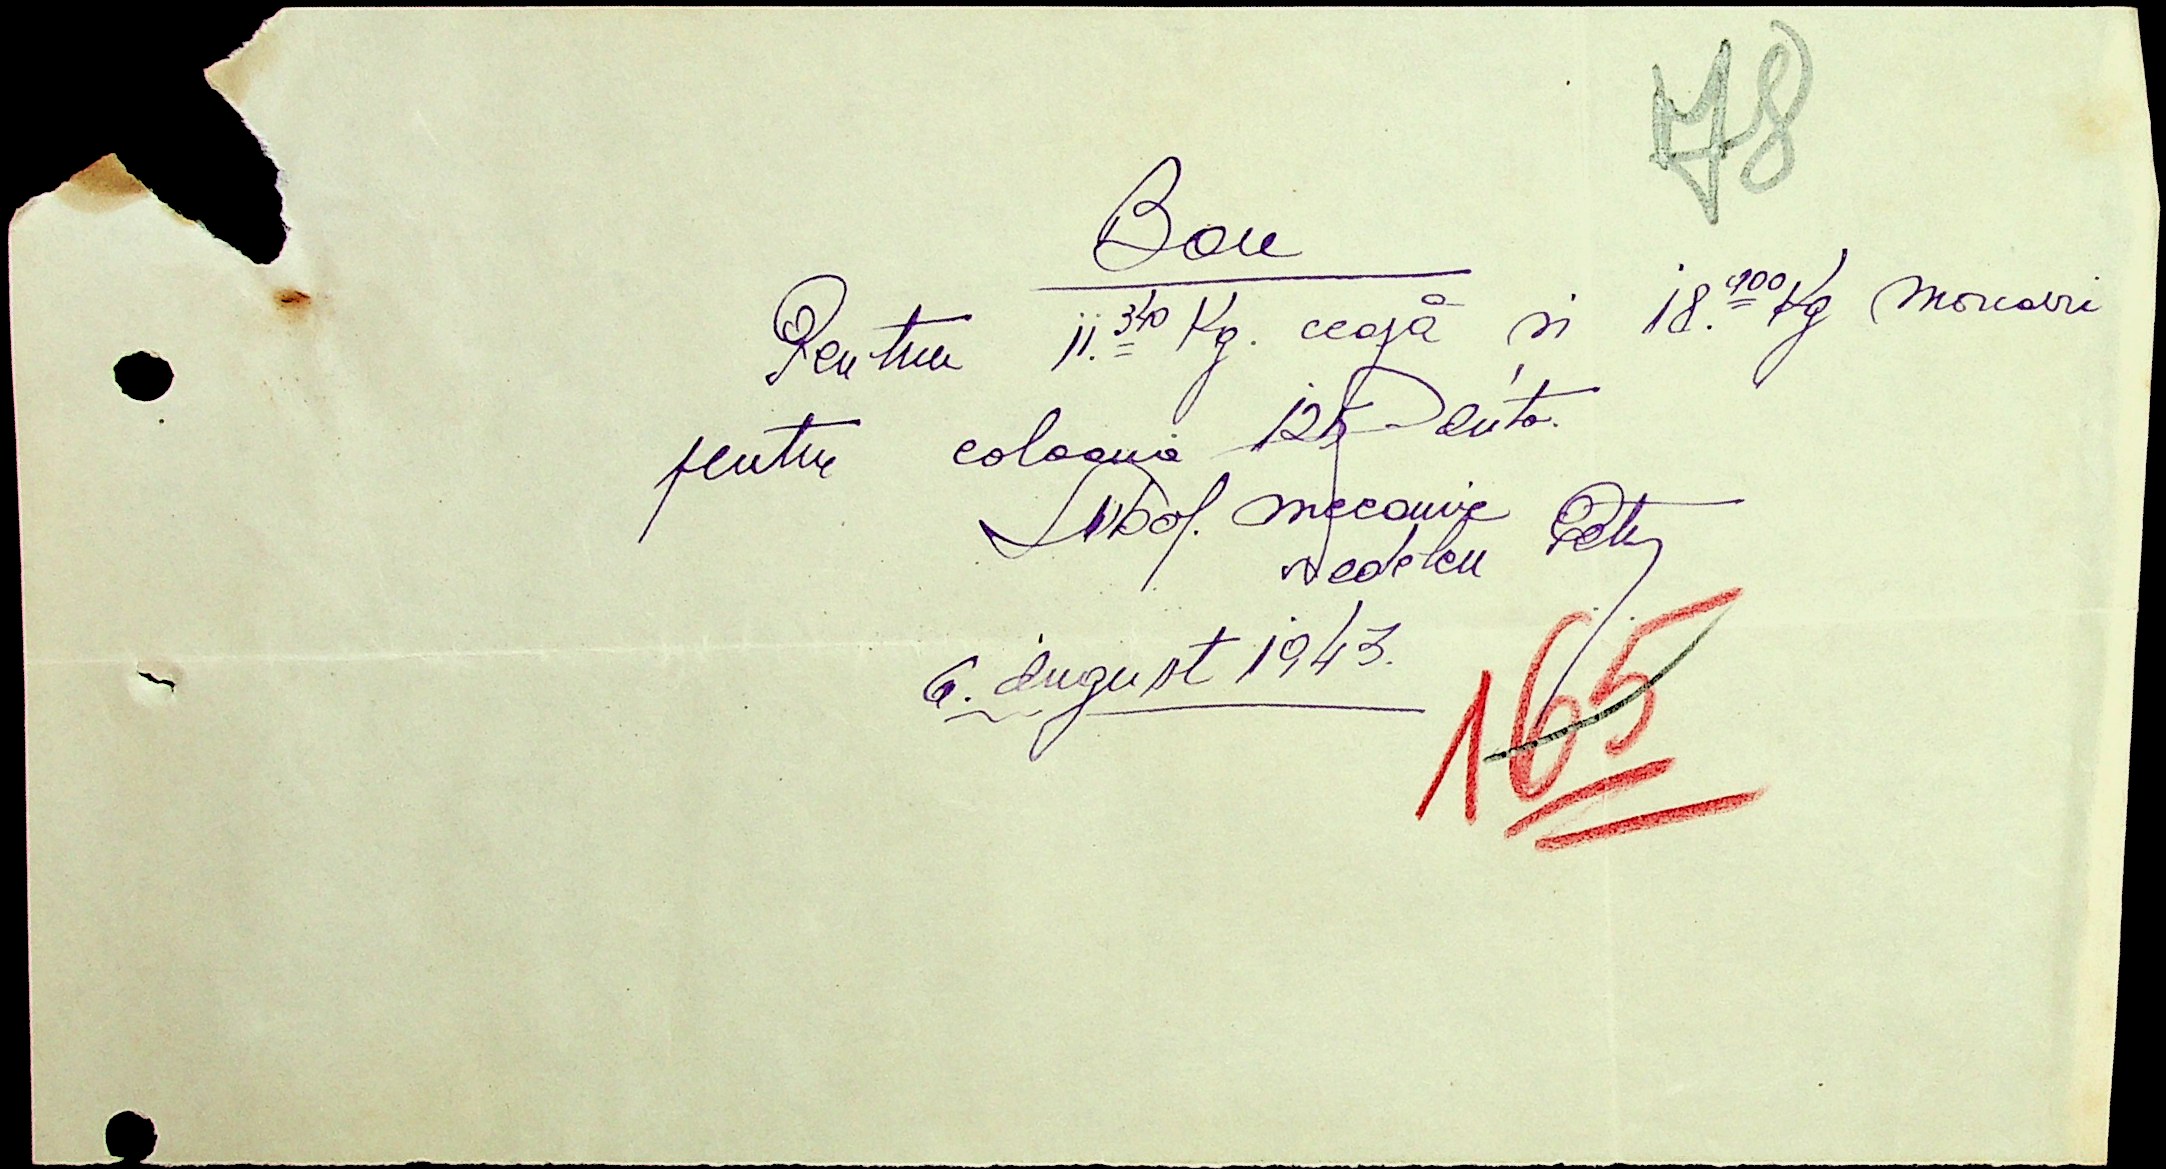 78
Bon
Pentru 11.340 Kg. ceapă și 18.900 Kg morcovi
pentru coloana 125 Auto.
Subof. mecanic
Nedelcu Petre
6. August 1943.
165